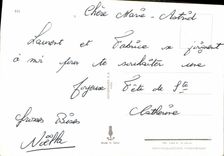 Chère Marie-Astrid
Laurent et Fabrice se joignent
à moi pour te souhaiter une
Joyeuse Fête de Ste
Catherine
Grosses Bises
Noëlla